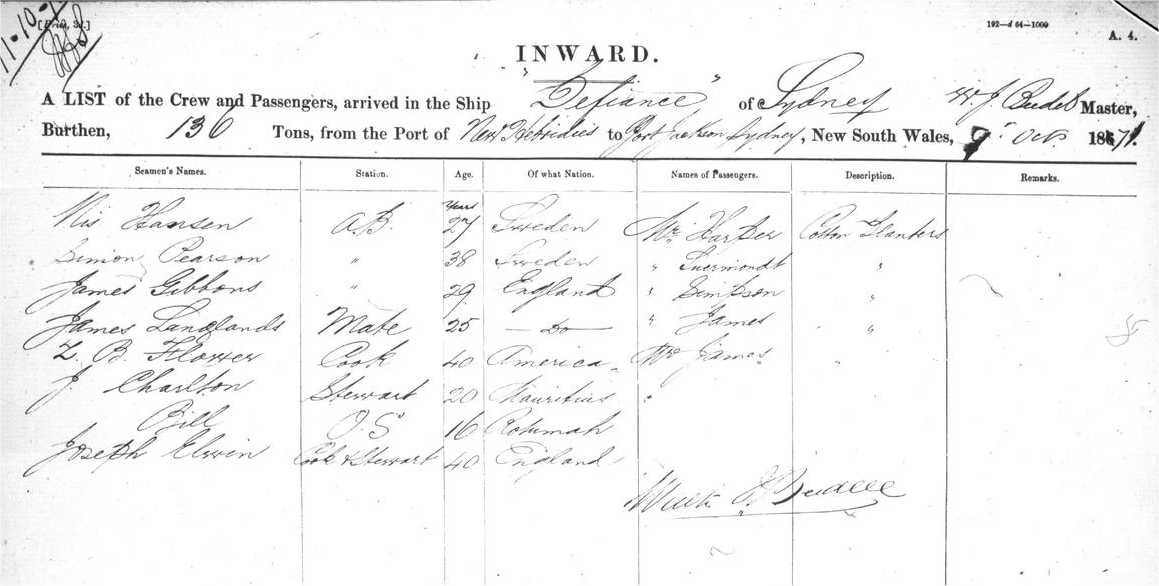 11-10-7
[Price, 3d.]
192—d 64—1000
A. 4.
INWARD.
A LIST of the Crew and Passengers, arrived in the Ship "Defiance" of Sydney W. J. Budel Master,
Burthen, 136 Tons, from the Port of New Hebridies to Port Jackson Sydney, New South Wales, 9th Oct 1871.
Seamen's Names. Station. Age. Of what Nation. Names of Passengers. Description. Remarks.
Years
Nis Hansen A.B. 27 Sweden Mr. Harper Cotton Planters
Simon Pearson " 38 Sweden " Suermondt "
James Gibbons " 29 England " Simpson "
James Langlands Mate 25 — Do — " James "
Z. B. Flower Cook 40 America. Mrs James "
J. Charlton Stewart 20 Mauritius "
Bill O.S 16 Rotumah
Joseph Elwin Cook & Stewart 40 England